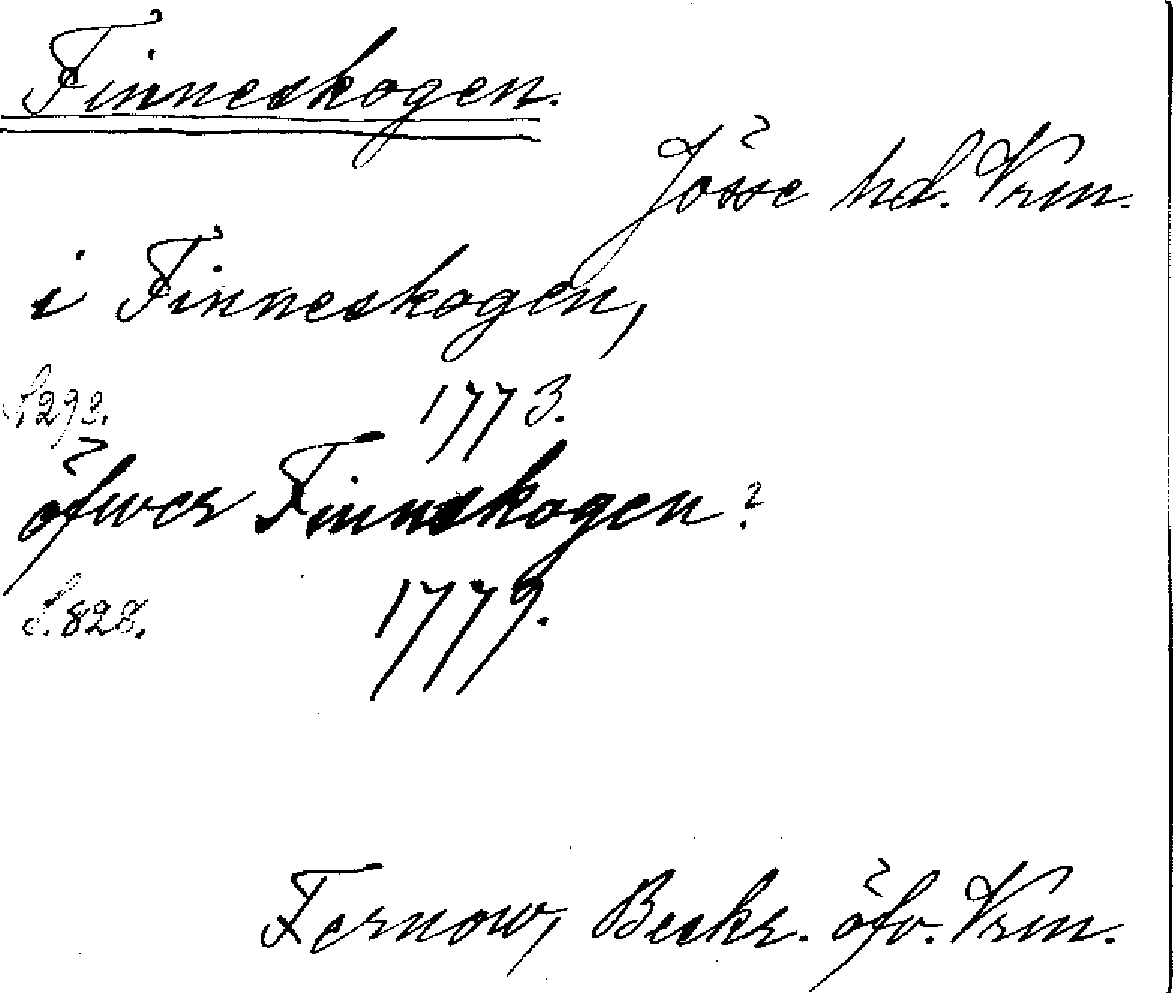 Finneskogen.
Jösse hd. Vrm.
i Finneskogen,
S. 292. 1773.
öfwer Finneskogen?
S. 828. 1779.
Fernow, Beskr. öfv. Vrm.